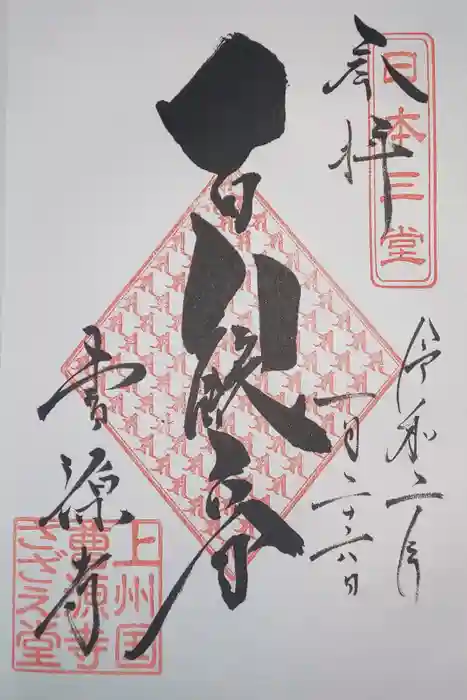 日本三堂
奉拝
令和二年
一月二十六日
百 観音
曹源寺
上州国
曹源寺
さざえ堂